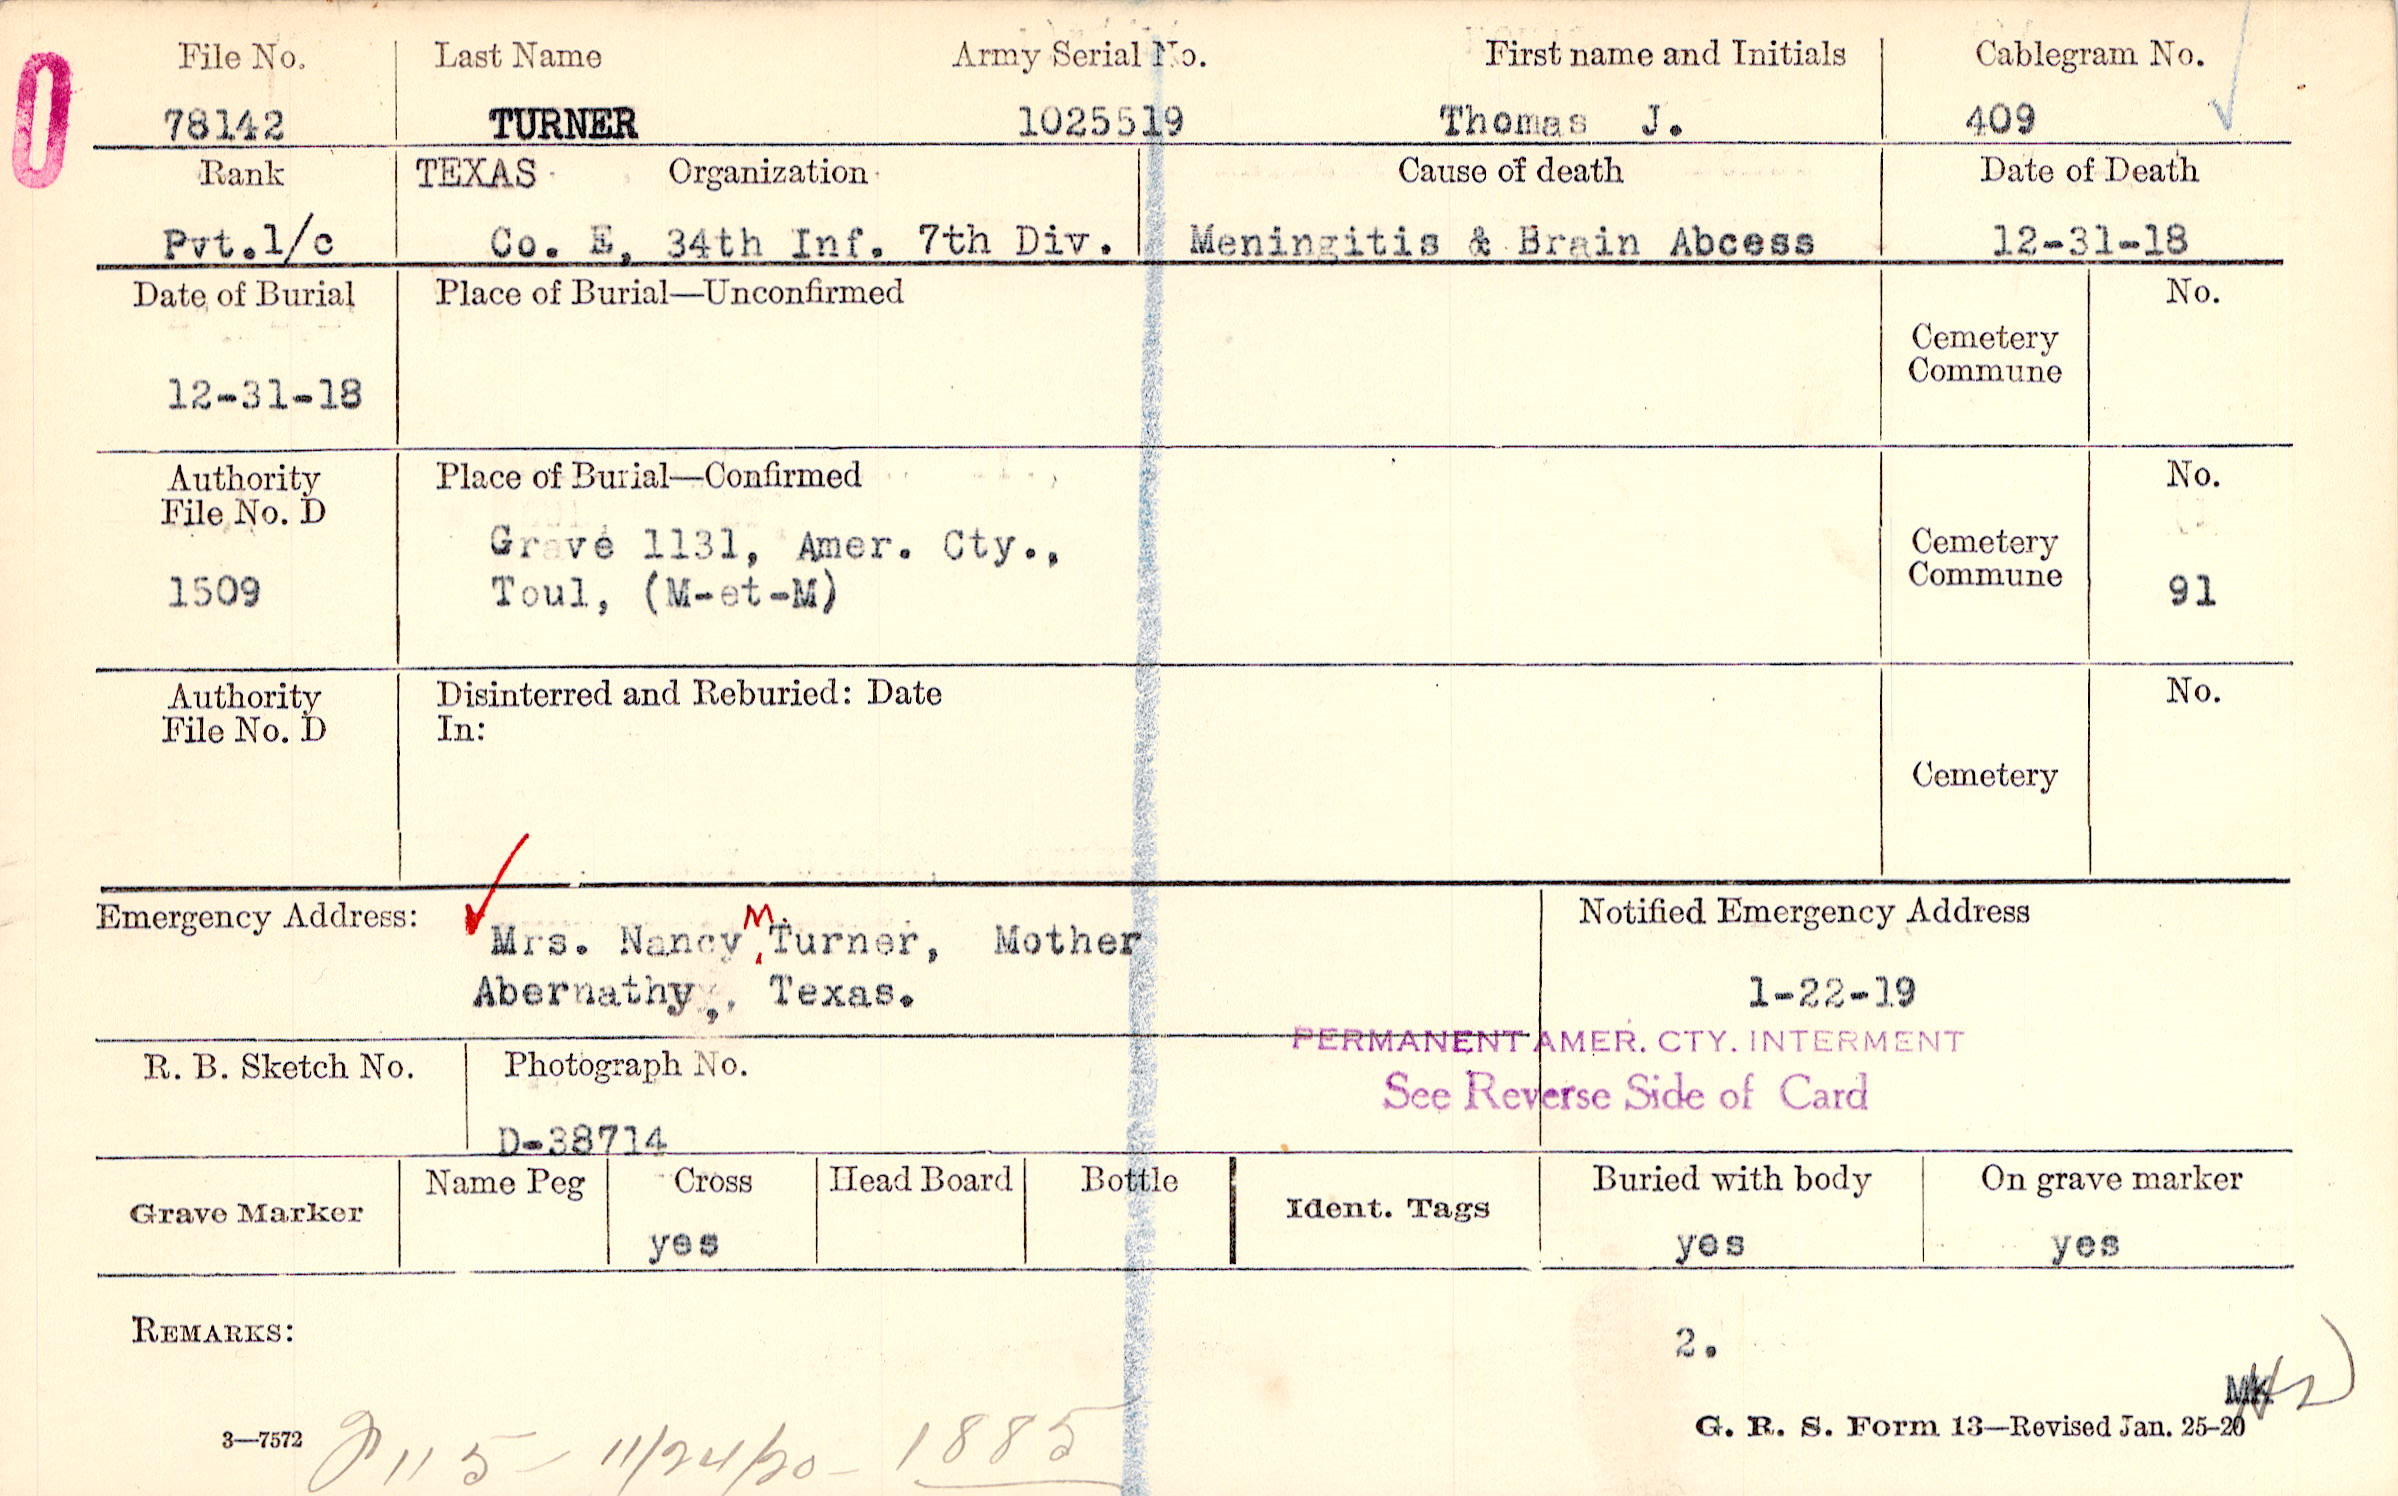 File No. Last Name Army Serial No. First name and Initials Cablegram No.
78142 TURNER 1025519 Thomas J. 409
Rank TEXAS Organization Cause of death Date of Death
Pvt.1/c Co. E, 34th Inf. 7th Div. Meningitis & Brain Abcess 12-31-18
Date of Burial Place of Burial—Unconfirmed No.
Cemetery
Commune
12-31-18
Authority Place of Burial—Confirmed No.
File No. D
Grave 1131, Amer. Cty., Cemetery
Commune
1509 Toul, (M-et-M) 91
Authority Disinterred and Reburied: Date No.
File No. D In:
Cemetery
Emergency Address: Notified Emergency Address
Mrs. Nancy M. Turner, Mother
Abernathy, Texas. 1-22-19
PERMANENT AMER. CTY. INTERMENT
R. B. Sketch No. Photograph No.
See Reverse Side of Card
D-38714
Grave Marker Name Peg Cross Head Board Bottle Ident. Tags Buried with body On grave marker
yes yes yes
REMARKS:
2.
MK
3—7572 115 - 11/24/20 - 1885 G. R. S. Form 13—Revised Jan. 25-20